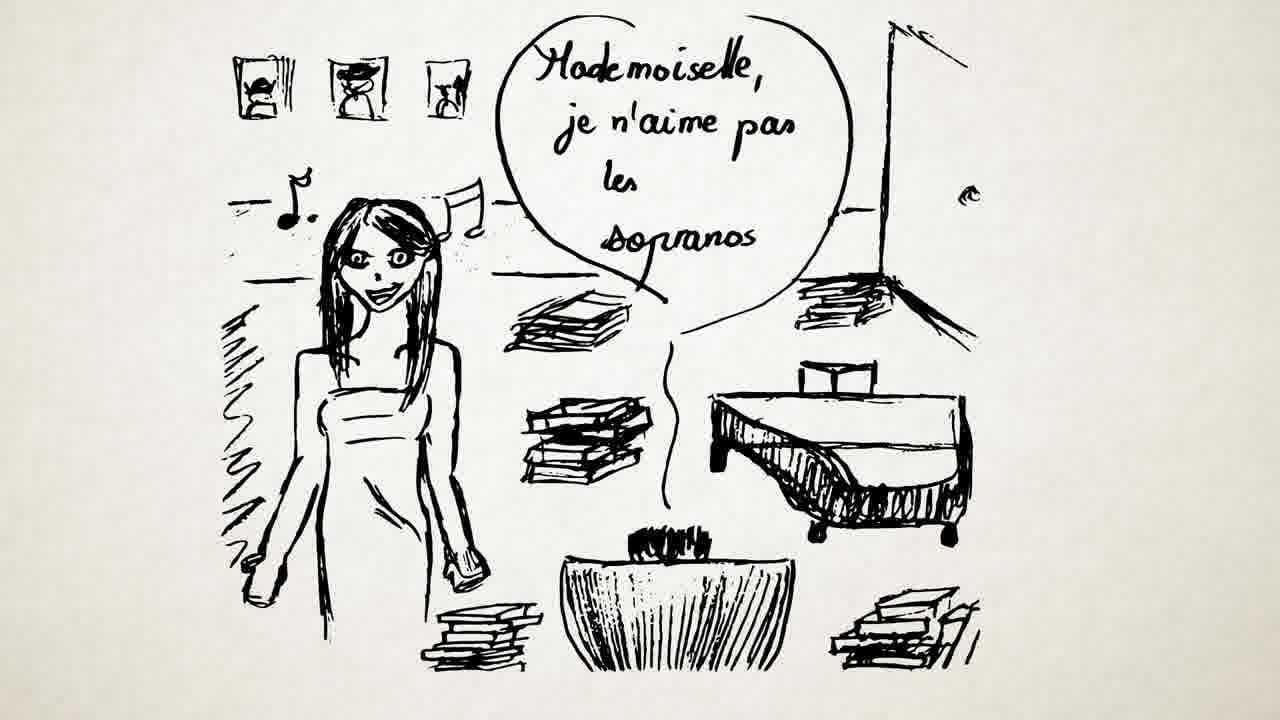 Mademoiselle,
je n'aime pas
les
sopranos